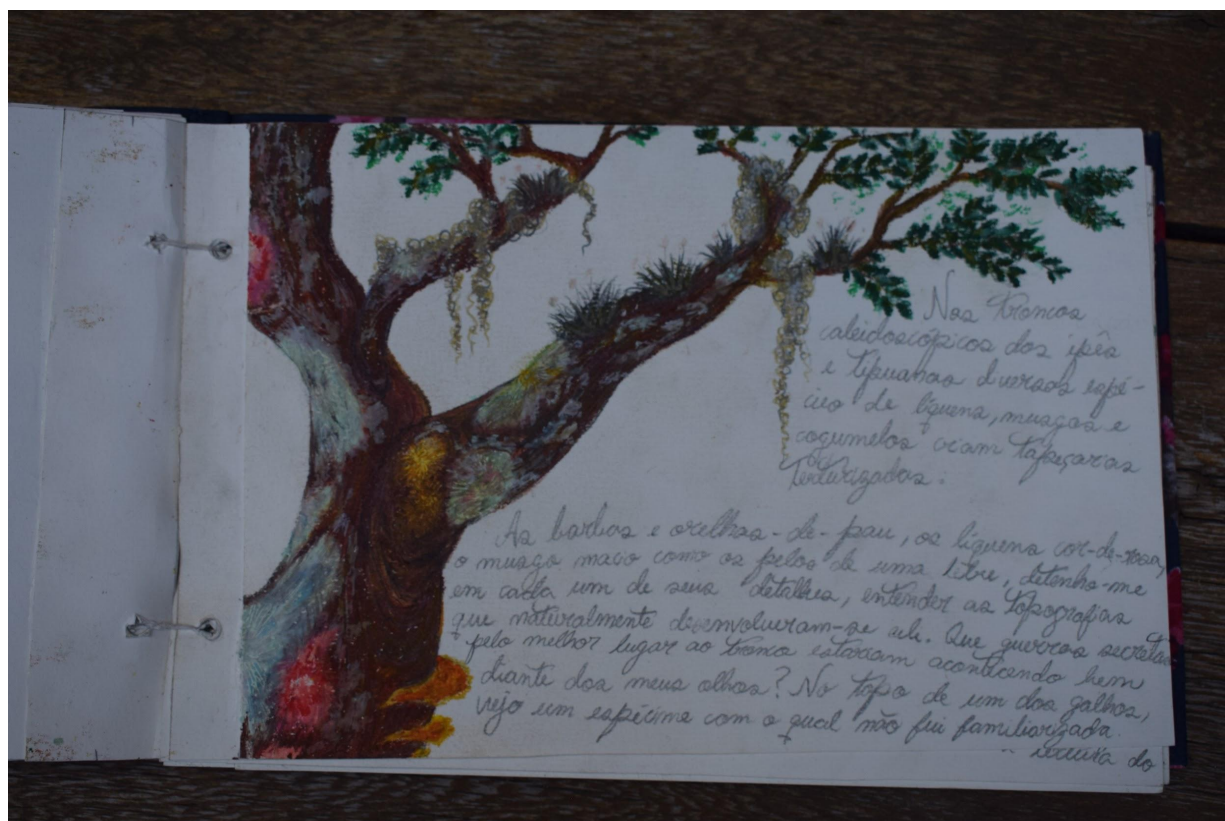 Nos troncos
caleidoscópicos dos ipês
e tipuanas diversas espé-
cies de líquens, musgos e
cogumelos criam tapeçarias
texturizadas.
As barbas e orelhas-de-pau, os líquens cor-de-rosa,
o musgo macio como os pelos de uma lebre, detenho-me
em cada um de seus detalhes, entender as topografias
que naturalmente desenvolveram-se ali. Que guerras secretas
pelo melhor lugar ao tronco estariam acontecendo bem
diante dos meus olhos? No topo de um dos galhos,
vejo um espécime com o qual não fui familiarizada.
do